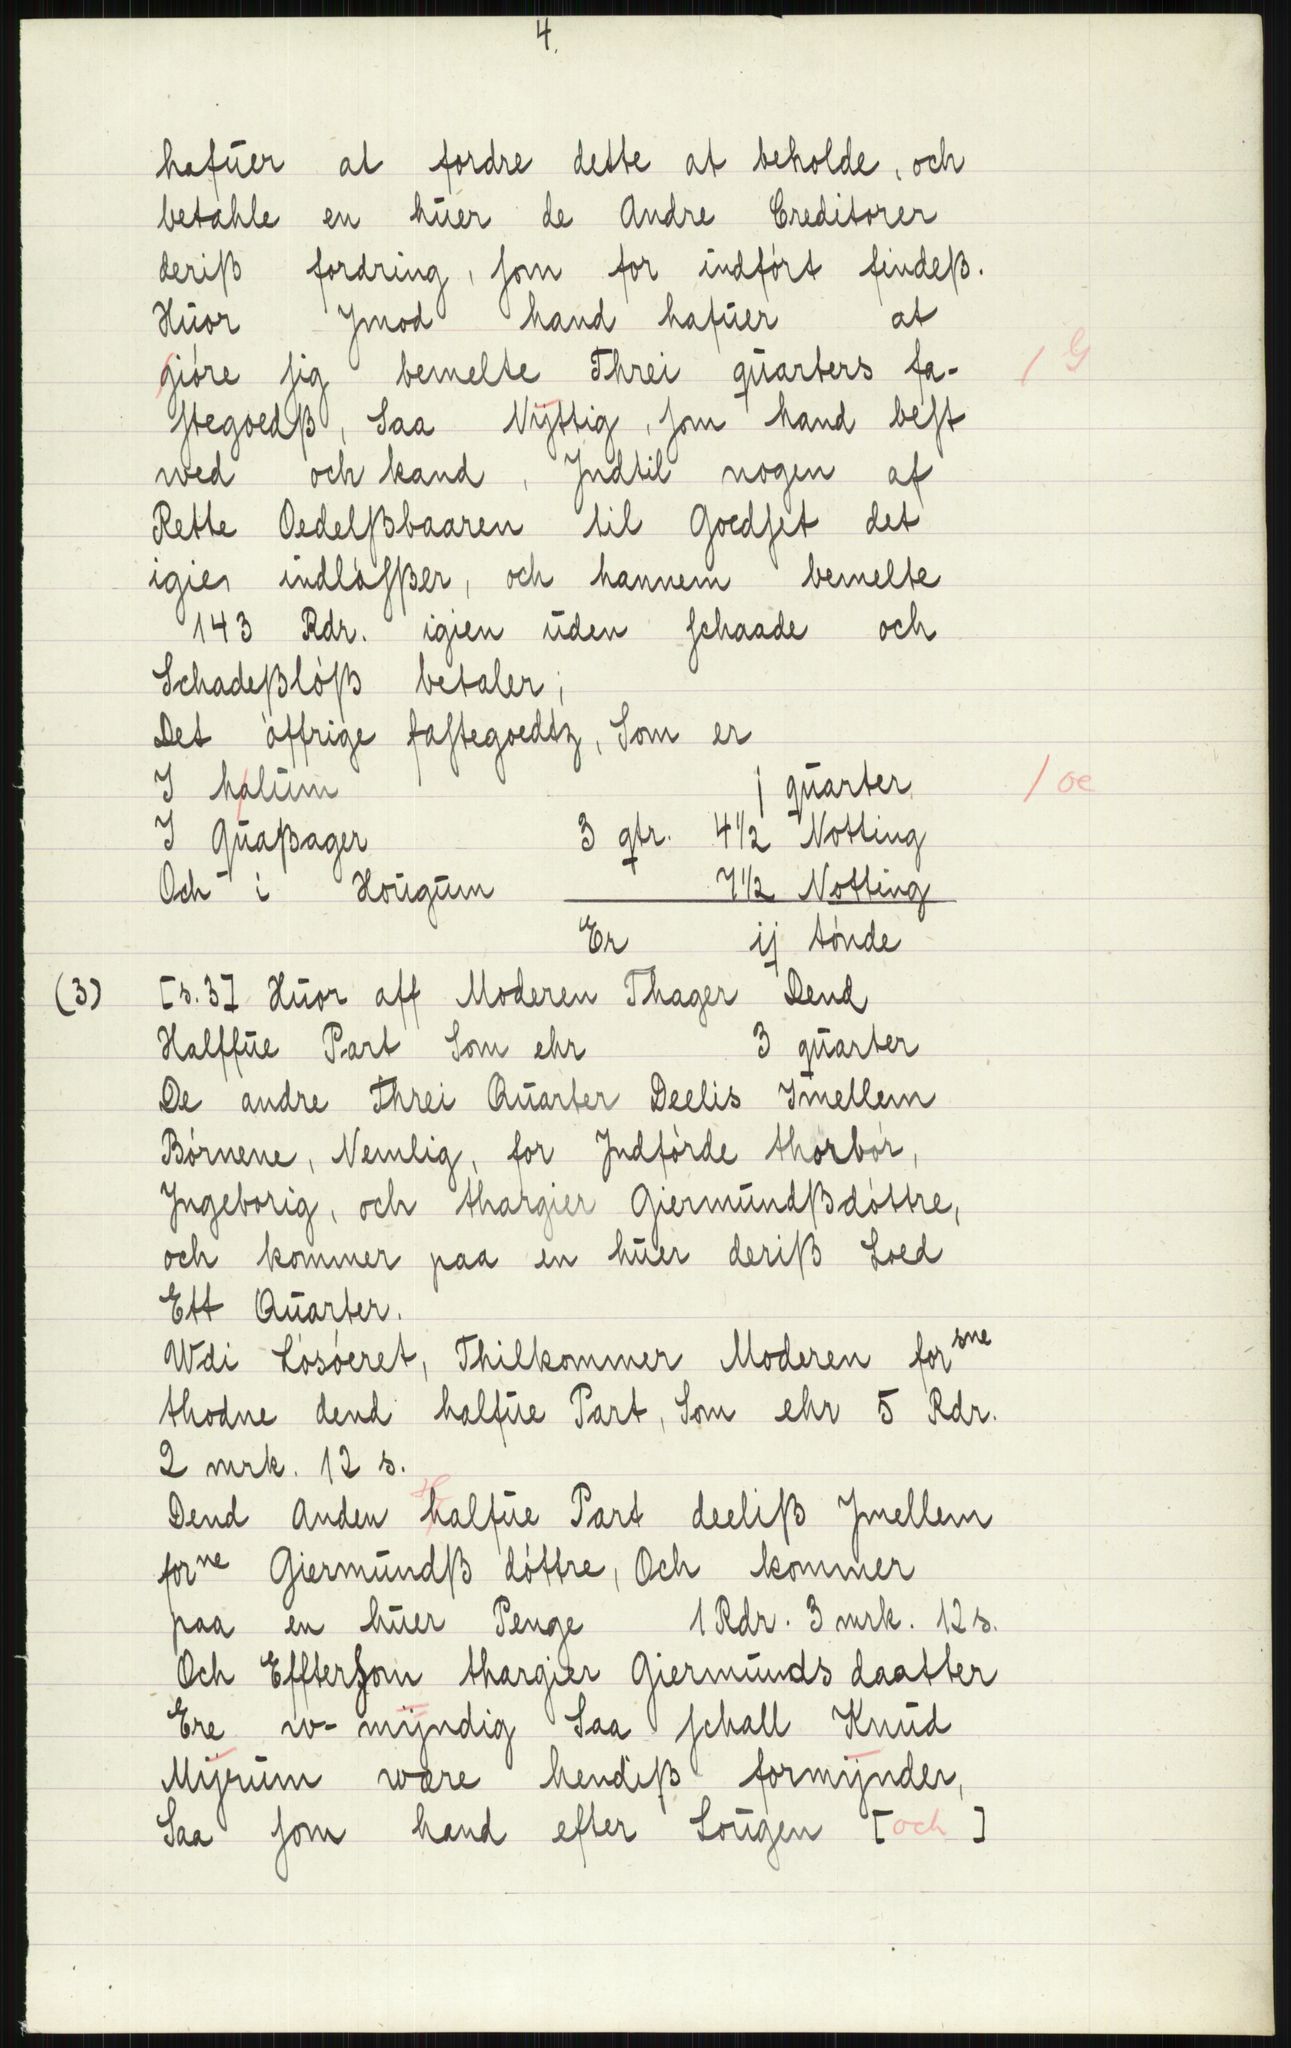 4.
hafūer at fordre dette at beholde, och
betahle en hūer de Andre Creditorer
deriß fordring, som for indfört findeß.
Hūor Ymod hand hafūer at
giöre sig bemelte Threi qūarters fa- / G
stegoedß, Saa Nÿttig, som hand best
wed och kand, Jndtil nogen af
Rette Oedelßbaaren til Goedset det
igien indlösßer, och hannem bemelte
143 Rdr. igien ūden schaade och
Schadeßlöß betaler;
Det öffrige fastegoedtz, Som er
I halūm j qūarter / oe
I Qūaßager 3 qtr. 4½ Notting
Och i Hoūgūm 7½ Notting
Er ij tönde
(3) [s. 3] Hūor aff Moderen Thager Dend
Halffūe Part Som ehr 3 qūarter
De andre Threi Qūarter Deelis Imellem
Börnene, Nemlig, for Jndförde thorbör,
Jngeborig, och thargier Giermūndßdöttre,
och kommer paa en hūer deriß Loed
Ett Qūarter.
Wdi Lösöeret, Thilkommer Moderen forsne
thodne dend halfūe Part, Som ehr 5 Rdr.
2 mrk. 12 s.
Dend Anden halfūe Part deeliß Jmellem
forne Giermūndß döttre, Och kommer
paa en hūer Penge 1 Rdr. 3 mrk. 12 s.
Och Efftersom thargier Giermūnds daatter
Ere w- mÿndig Saa schall Knūd
Mÿrūm wære hendiß formÿnder,
Saa som hand efter Loūgen [och]